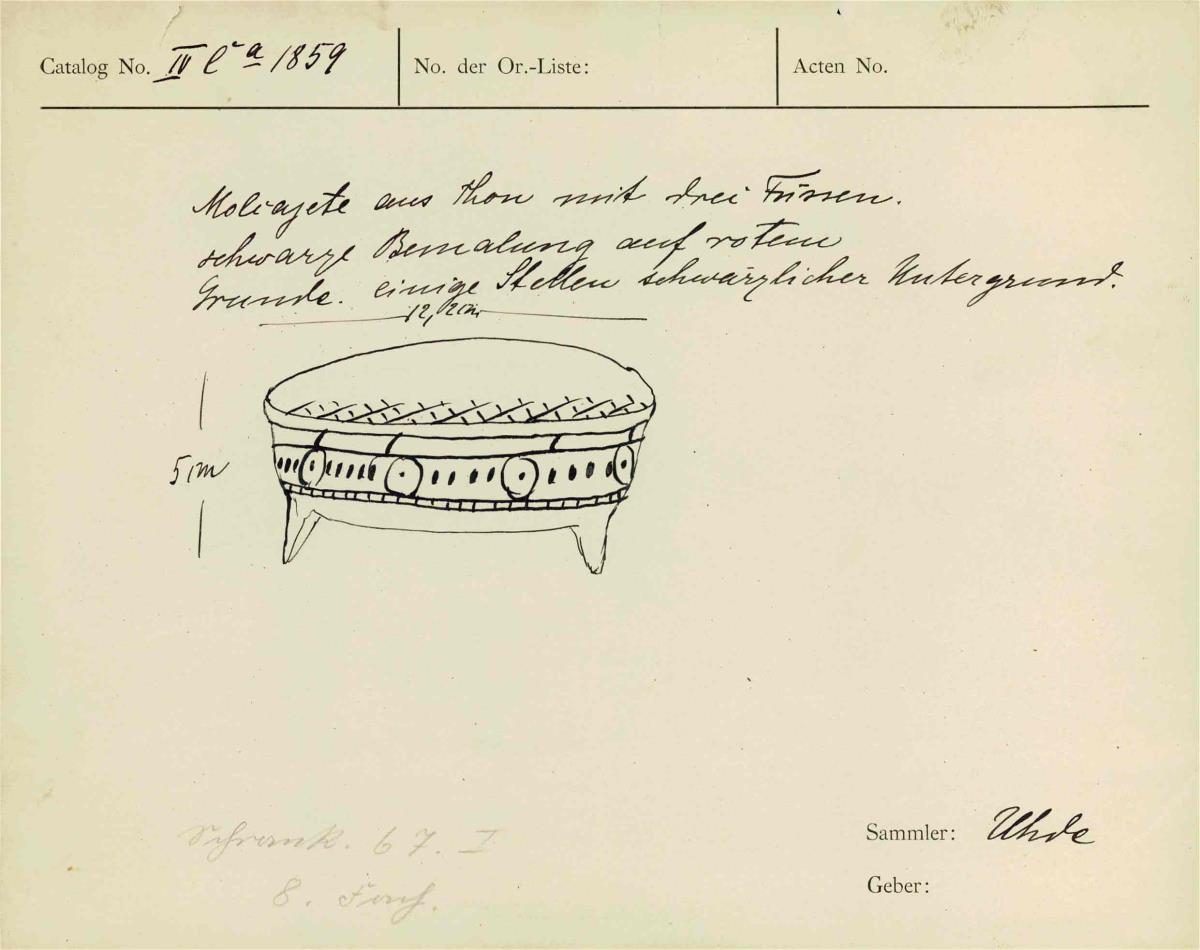 Catalog No. IV Ca 1859
No. der Or.-Liste:
Acten No.
Molcajete aus Thon mit drei Füssen.
schwarze Bemalung auf rotem
Grunde. einige Stellen schwärzlicher Untergrund.
12,2cm
5cm
Schrank. 67. I
8. Fach.
Sammler: Uhde
Geber: